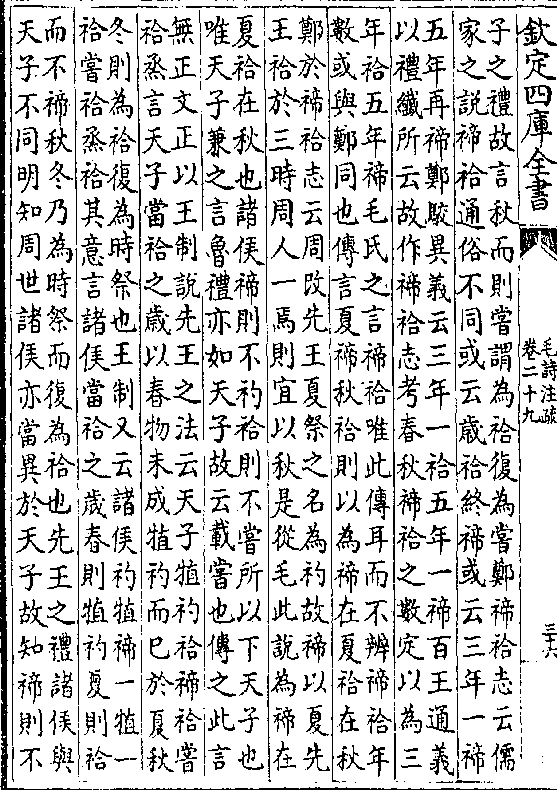 欽定四庫全書
毛詩注疏
卷二十九
三六
子之禮故言秋而則嘗謂為祫復為嘗鄭禘祫志云儒
家之說禘祫通俗不同或云歲祫終禘或云三年一禘
五年再禘鄭駮異義云三年一祫五年一禘百王通義
以禮纖所云故作禘祫志考春秋禘祫之數定以為三
年祫五年禘毛氏之言禘祫唯此傳耳而不辨禘祫年
數或與鄭同也傳言夏禘秋祫則以為禘在夏祫在秋
鄭於禘祫志云周改先王夏祭之名為礿故禘以夏先
王祫於三時周人一焉則宜以秋是從毛此說為禘在
夏祫在秋也諸侯禘則不礿祫則不嘗所以下天子也
唯天子兼之言魯禮亦如天子故云載嘗也傳之此言
無正文正以王制說先王之法云天子犆礿祫禘祫嘗
祫烝言天子當祫之歲以春物未成犆礿而已於夏秋
冬則為祫復為時祭也王制又云諸侯礿犆禘一犆一
祫嘗祫烝祫其意言諸侯當祫之歲春則犆礿夏則祫
而不禘秋冬乃為時祭而復為祫也先王之禮諸侯與
天子不同明知周世諸侯亦當異於天子故知禘則不